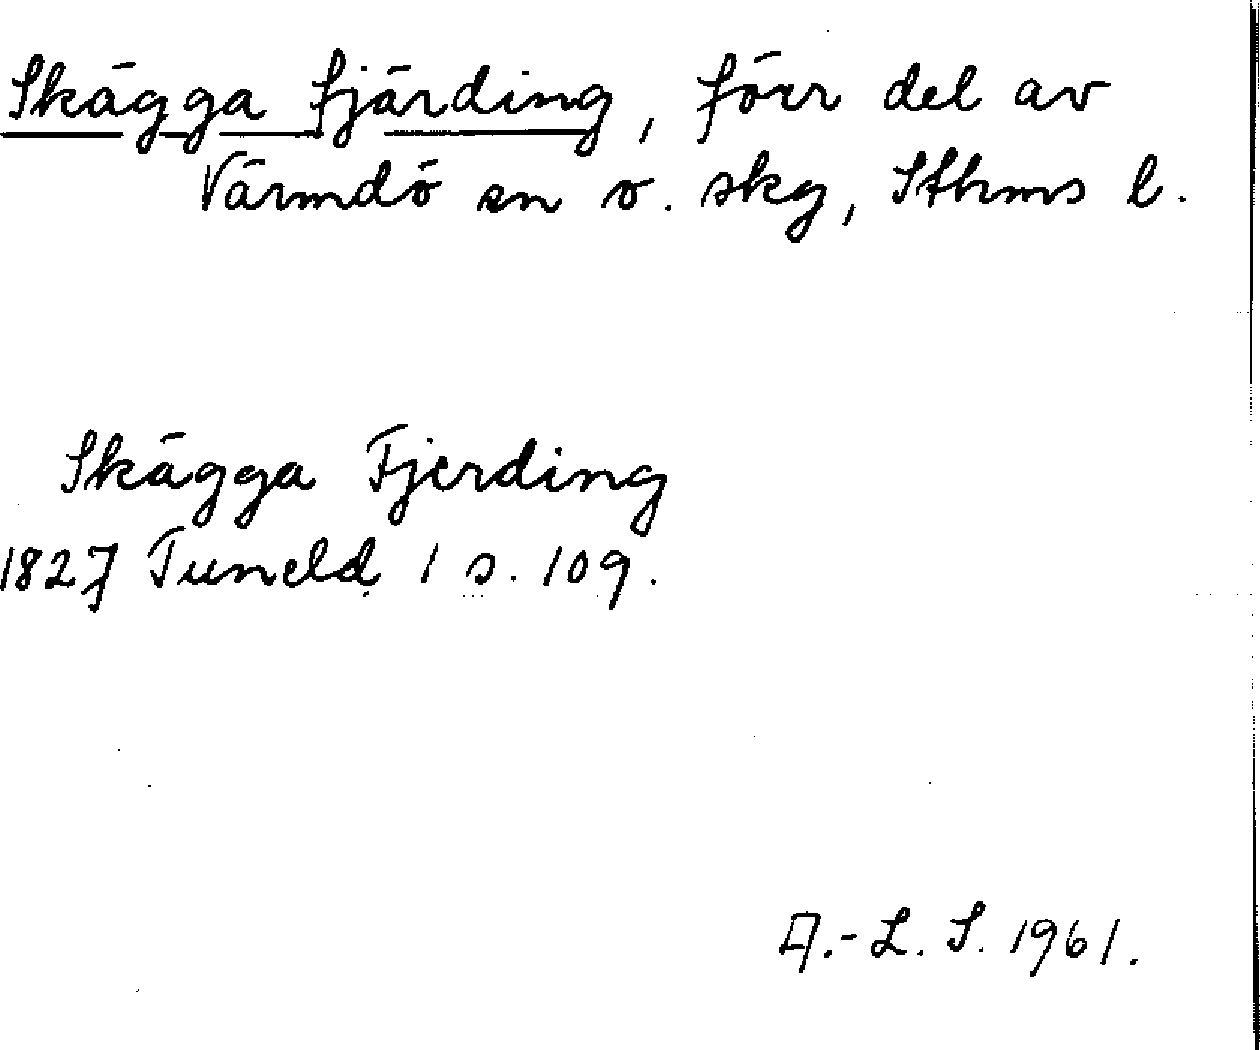 Skägga fjärding, förr del av
Värmdö sn o. skg, Sthms l.
Skägga Fjerding
1827 Tuneld 1 s. 109.
A.-L. S. 1961.